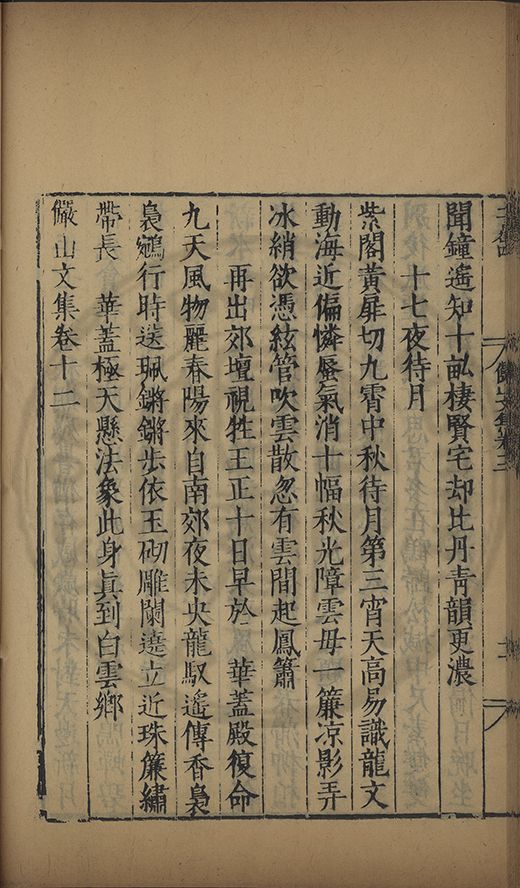 聞鐘遙知十畝棲賢宅却比丹青韻更濃
十七夜待月
紫閣黃扉切九霄中秋待月第三宵天高易識龍文
動海近偏憐蜃氣消十幅秋光障雲母一簾凉影弄
冰綃欲憑絃管吹雲散忽有雲間起鳳簫
再出郊壇視牲王正十日早於 華蓋殿復命
九天風物麗春陽來自南郊夜未央龍馭遙傳香裊
裊鵷行時送珮鏘鏘步依玉砌雕闌遶立近珠簾繡
帶長 華蓋極天懸法象此身眞到白雲鄉
儼山文集卷十二